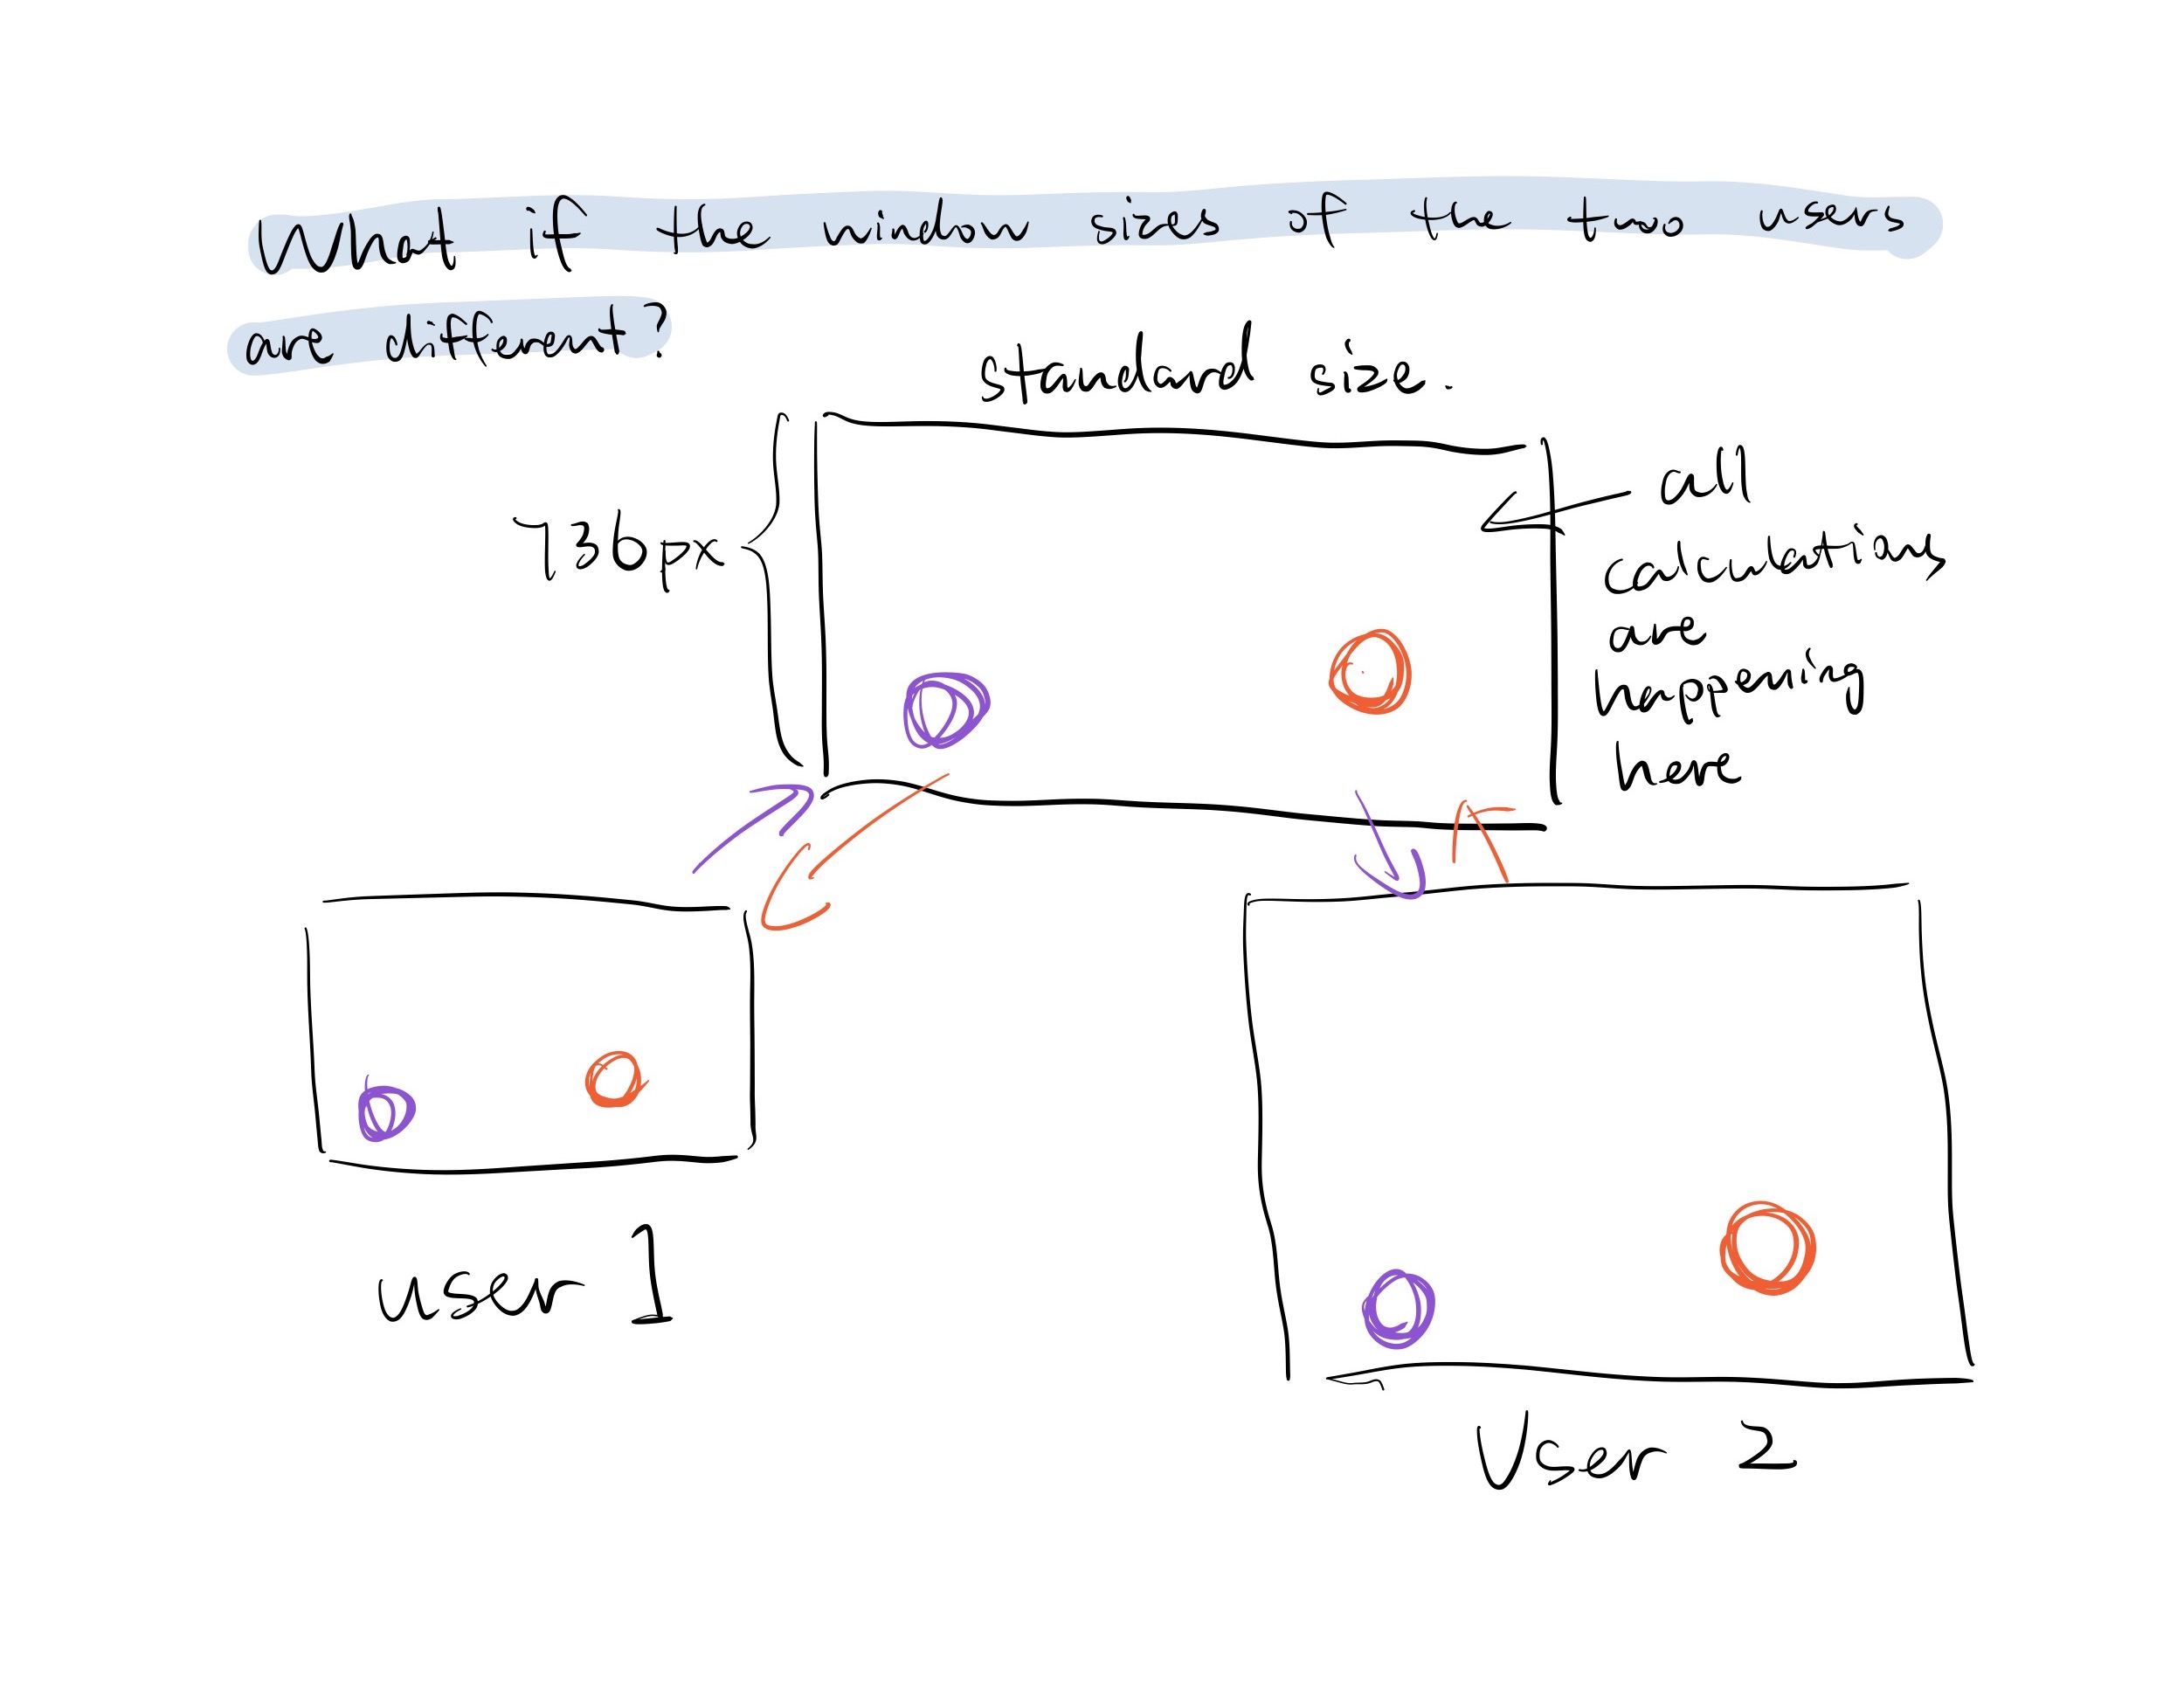 What if the window sizes of the two users
are different?
standard size.
736px
all
calculations
are
happening
here
user 1
User 2